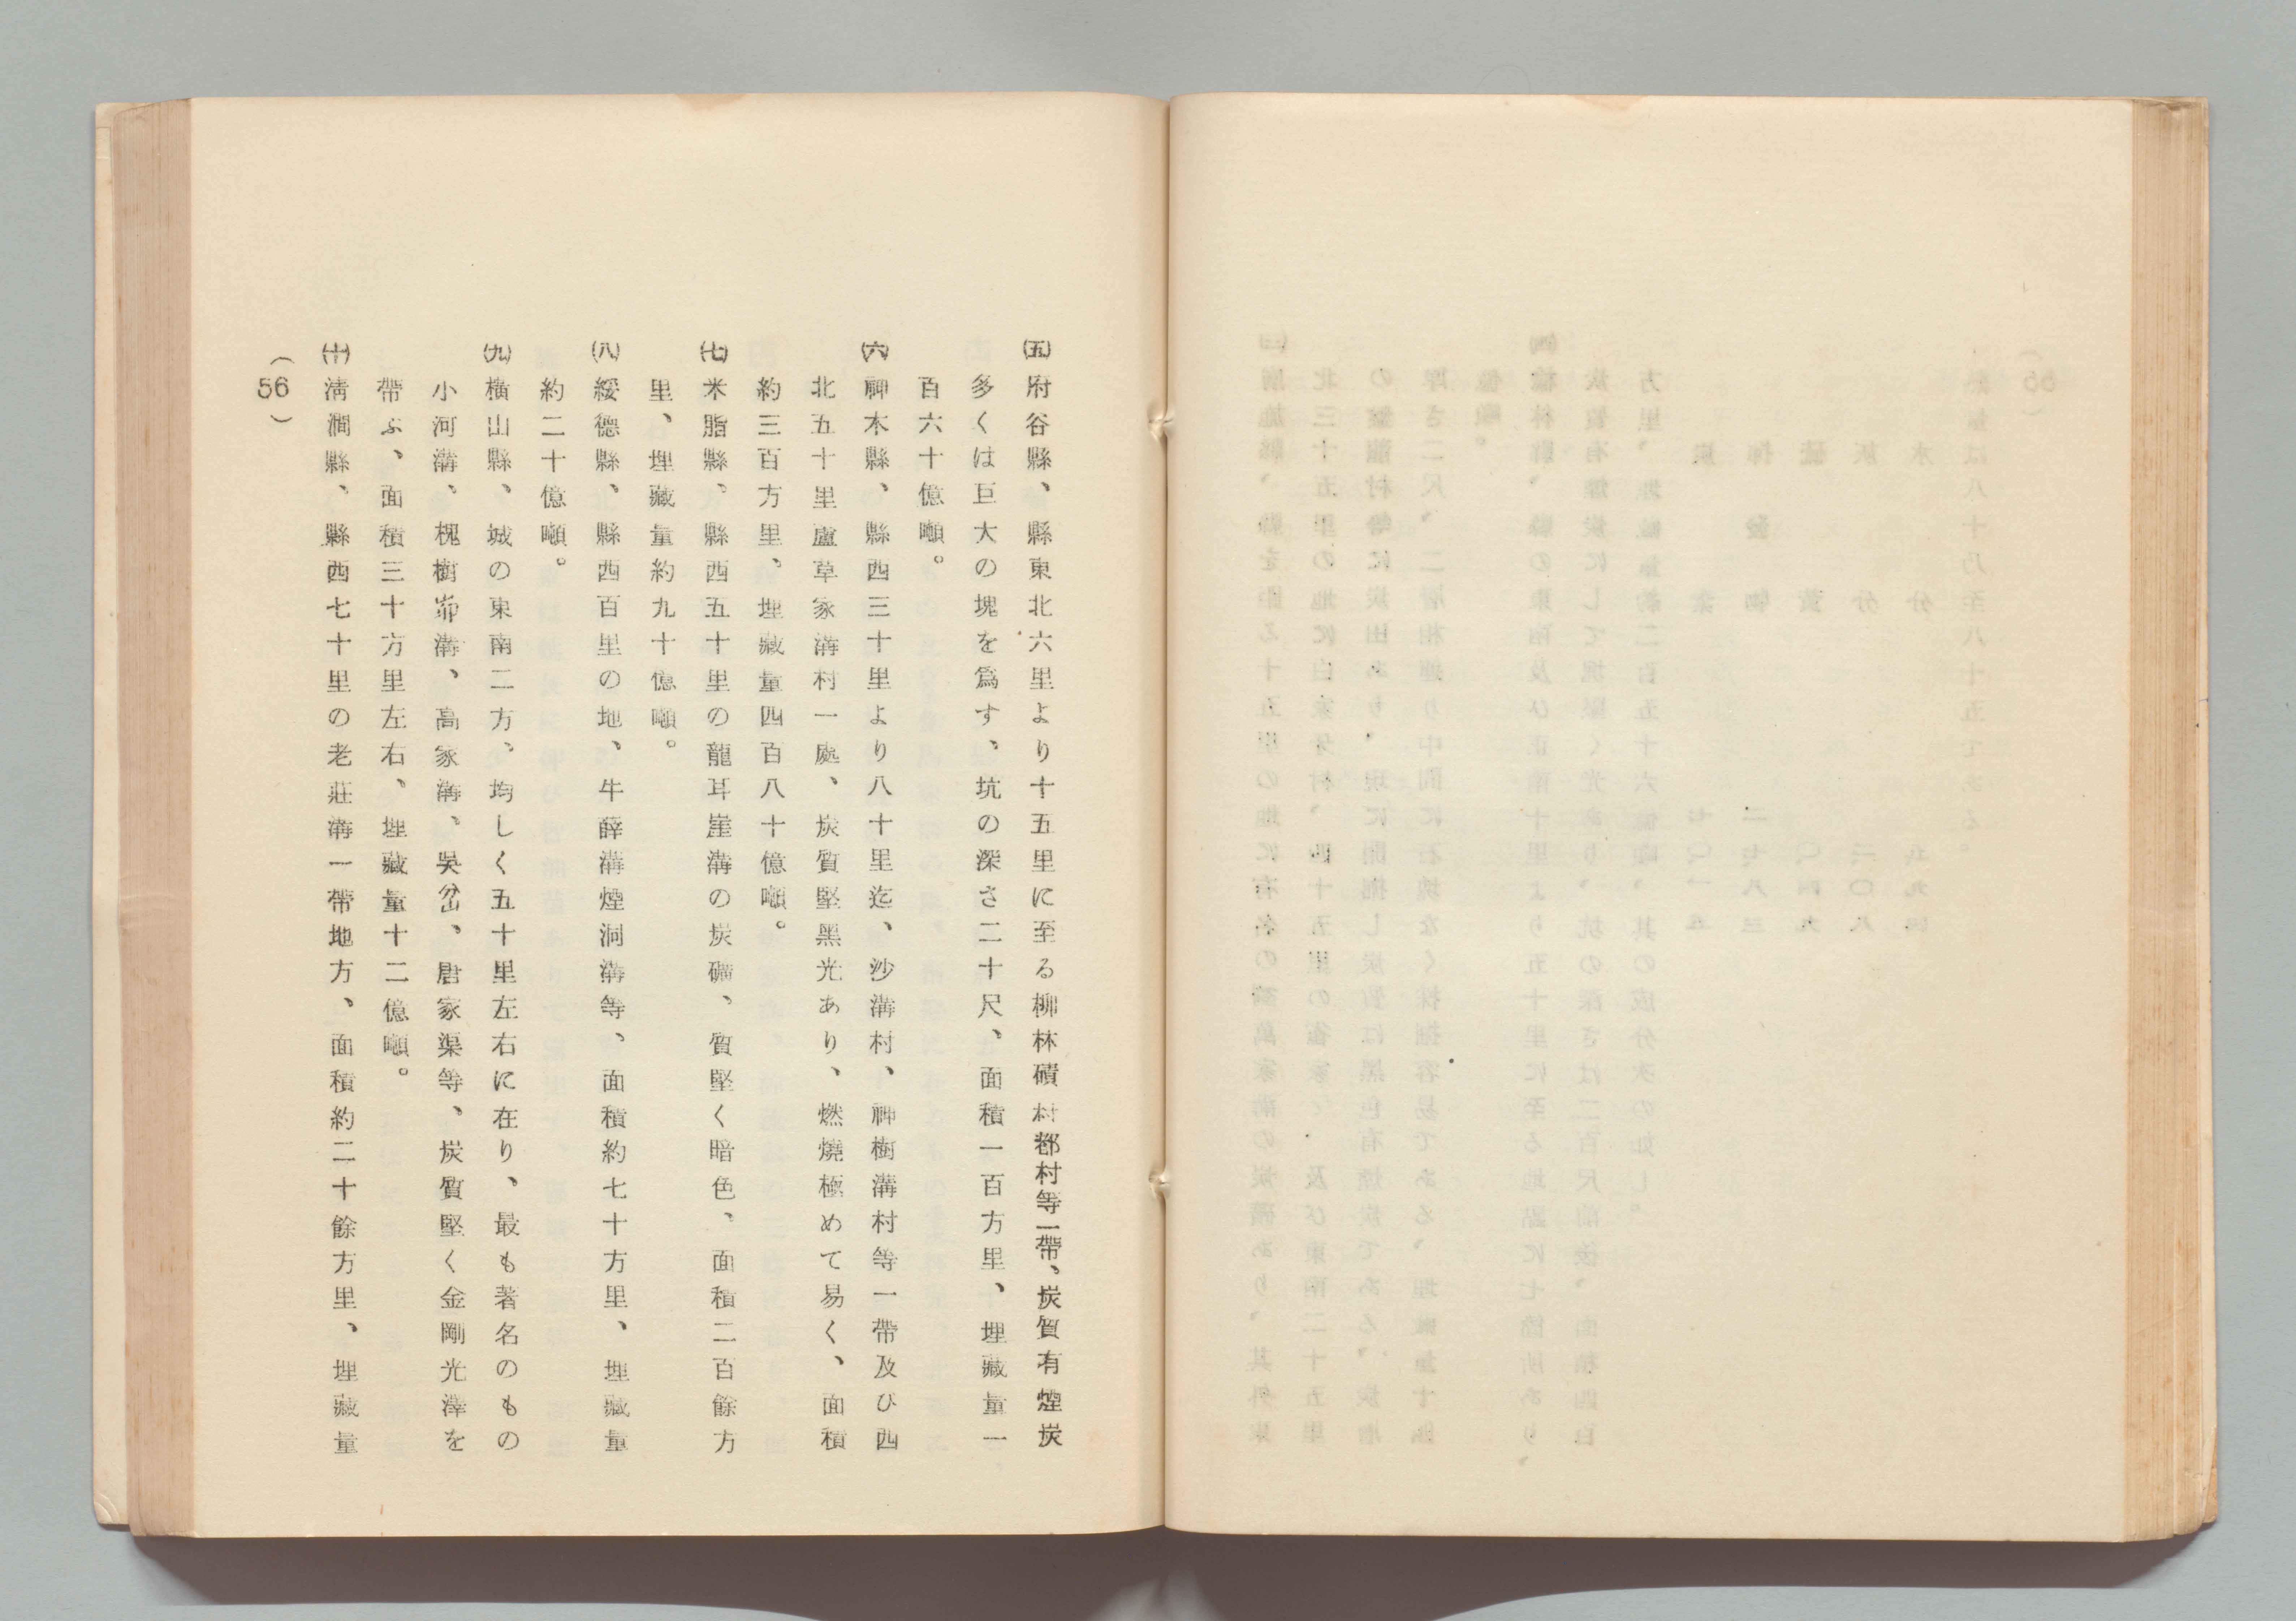 ㈤府谷縣、縣東北六里より十五里に至る柳林磧村郝村等一帶、炭質有煙炭
多くは巨大の塊を爲す、坑の深さ二十尺、面積一百方里、埋藏量一
百六十億噸。
㈥神木縣、縣西三十里より八十里迄、沙溝村、神樹溝村等一帶及び西
北五十里盧草家溝村一處、炭質堅黑光あり、燃燒極めて易く、面積
約三百方里、埋藏量四百八十億噸。
㈦米脂縣、縣西五十里の龍耳崖溝の炭礦、質堅く暗色、面積二百餘方
里、埋藏量約九十億噸。
㈧綏德縣、縣西百里の地、牛薛溝煙洞溝等、面積約七十方里、埋藏量
約二十億噸。
㈨橫山縣、城の東南二方、均しく五十里左右に在り、最も著名のもの
小河溝、槐樹峁溝、高家溝、吳岔、唐家渠等、炭質堅く金剛光澤を
帶ぶ、面積三十方里左右、埋藏量十二億噸。
㈩淸澗縣、縣西七十里の老莊溝一帶地方、面積約二十餘方里、埋藏量
（56）